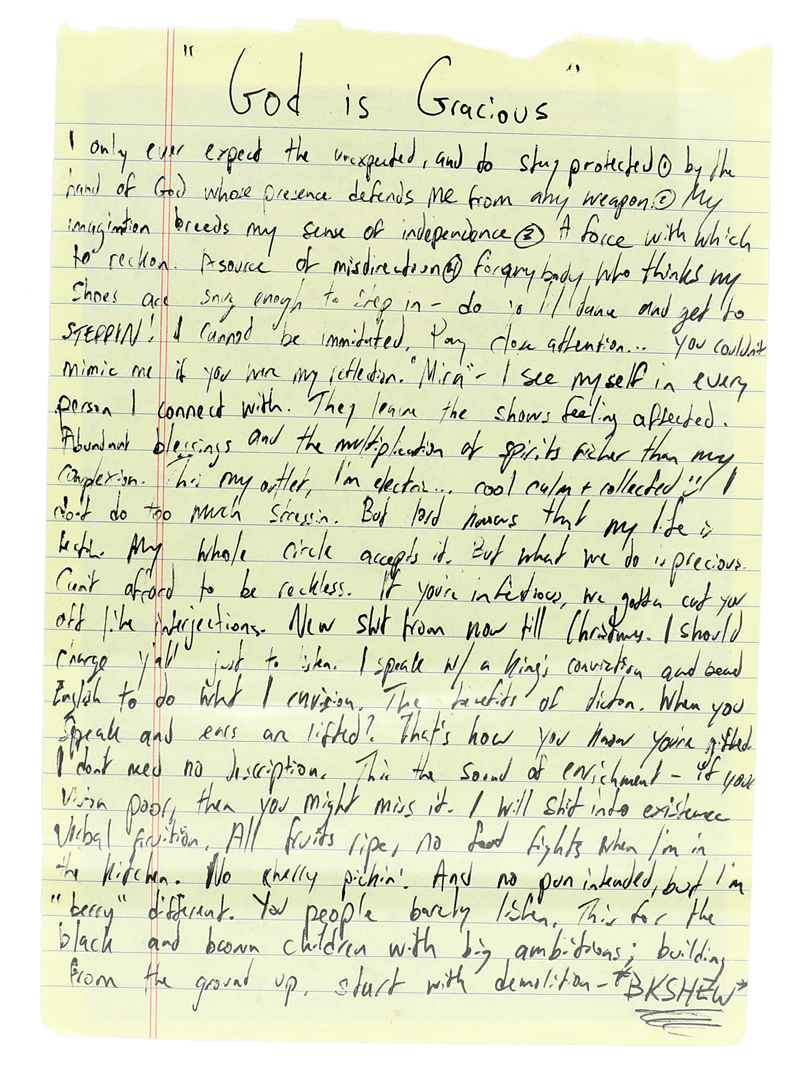 " God is Gracious "
I only ever expect the unexpected, and to stay protected ① by the
hand of God whose presence defends me from any weapon. ② My
imagination breeds my sense of independence ③ A force with which
to reckon. A source of misdirection ④ for anybody who thinks my
Shoes are snug enough to step in - do yo lil dance and get to
STEPPIN! I cannot be immitated. Pay close attention... you couldn't
mimic me if you were my reflection. "Mira" - I see myself in every
person I connect with. They leave the shows feeling affected.
Abundant blessings and the multiplication of spirits richer than my
complexion. This my outlet, I'm electric... cool calm + collected I
don't do too much stressin. But lord knows that my life is
hectic. My whole circle accepts it. But what we do is precious.
Can't afford to be reckless. If you're infectious, we gotta cut you
off like interjections. New shit from now till Christmas. I should
charge y'all just to listen. I speak w/ a king's conviction and bend
English to do what I envision. The benefits of diction. When you
Speak and ears are lifted? That's how you know you're gifted
I don't need no description. This the sound of enrichment - if your
Vision poor, then you might miss it. I will shit into existence
Verbal fruition. All fruits ripe, no food fights when I'm in
the kitchen. No cherry pickin'. And no pun intended, but I'm
"berry" different. You people barely listen. This for the
black and brown children with big ambitions; building
from the ground up, start with demolition - *BKSHEW*